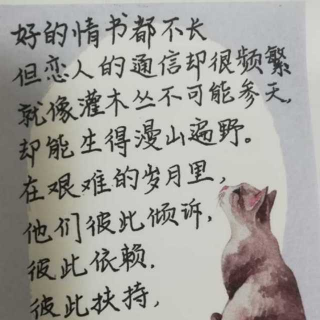 好的情书都不长
但恋人的通信却很频繁
就像灌木丛不可能参天,
却能生得漫山遍野。
在艰难的岁月里,
他们彼此倾诉,
彼此依赖.
彼此扶持,